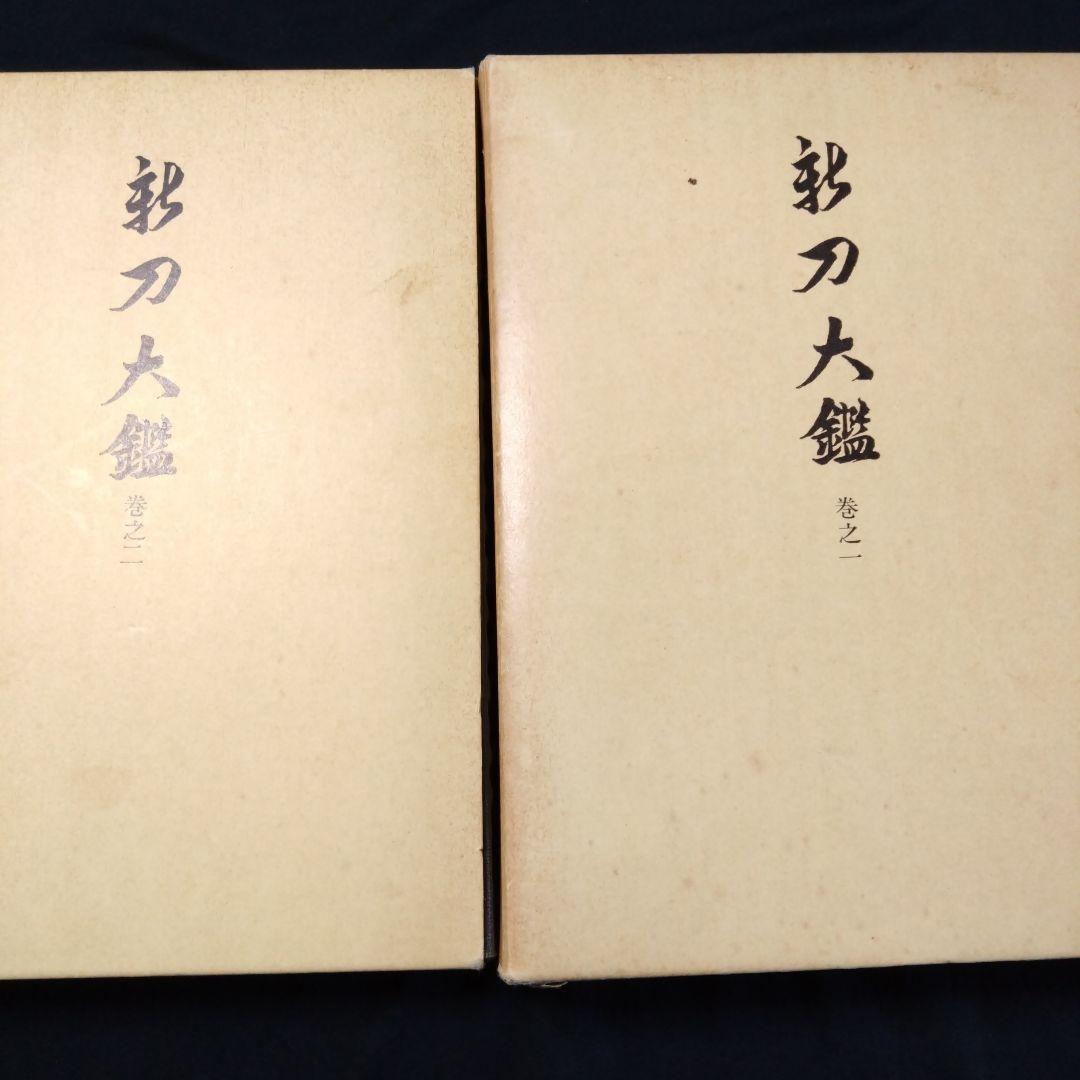 新刀大鑑
巻之一
新刀大鑑
巻之二